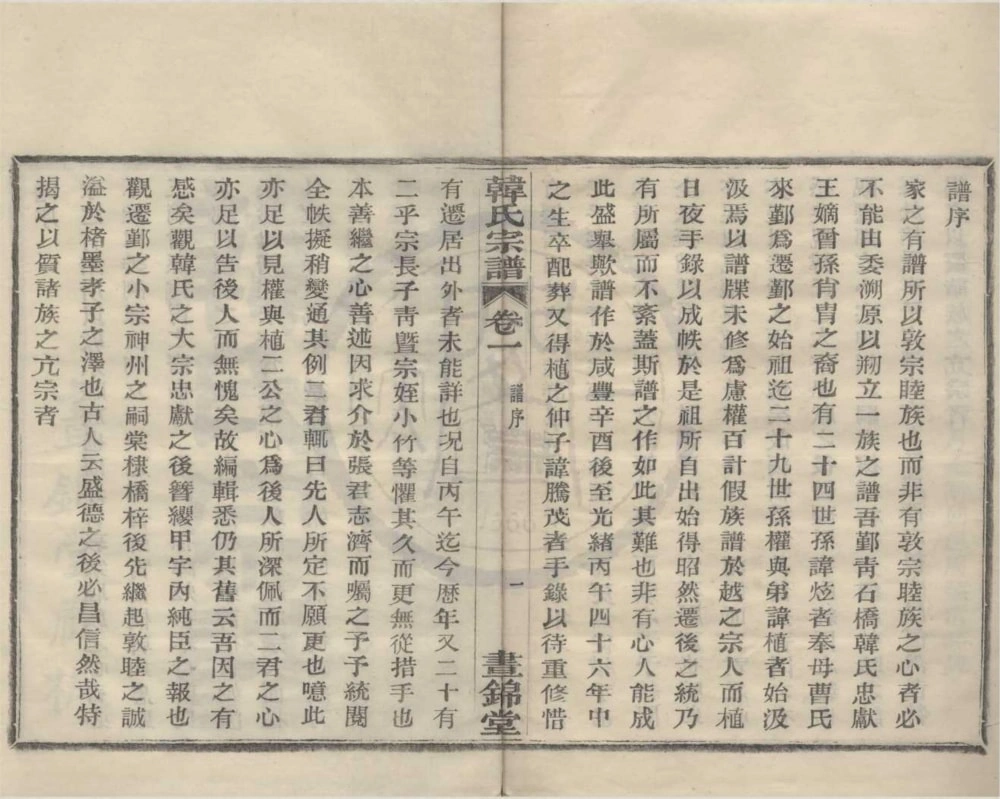 譜序
家之有譜所以敦宗睦族也而非有敦宗睦族之心者必
不能由委溯原以剏立一族之譜吾鄞靑石橋韓氏忠獻
王嫡曾孫肖胄之裔也有二十四世孫諱炫者奉母曹氏
來鄞爲遷鄞之始祖迄二十九世孫權與弟諱植者始汲
汲焉以譜牒未修爲慮權百計假族譜於越之宗人而植
日夜手錄以成帙於是祖所自出始得昭然遷後之統乃
有所屬而不紊蓋斯譜之作如此其難也非有心人能成
此盛舉歟譜作於咸豐辛酉後至光緒丙午四十六年中
之生卒配葬又得植之仲子諱騰茂者手錄以待重修惜
韓氏宗譜 卷一 譜序 一 晝錦堂
有遷居出外者未能詳也况自丙午迄今歷年又二十有
二乎宗長子靑曁宗姪小竹等懼其久而更無從措手也
本善繼之心善述因求介於張君志濟而囑之予予統閱
全帙擬稍變通其例二君輒曰先人所定不願更也噫此
亦足以見權與植二公之心爲後人所深佩而二君之心
亦足以告後人而無愧矣故編輯悉仍其舊云吾因之有
感矣觀韓氏之大宗忠獻之後簪纓甲宇內純臣之報也
觀遷鄞之小宗神州之嗣棠棣橋梓後先繼起敦睦之誠
溢於楮墨孝子之澤也古人云盛德之後必昌信然哉特
揭之以質諸族之亢宗者